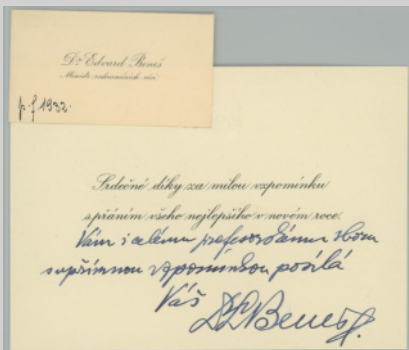 Dr Edvard Beneš
Ministr zahraničních věcí
p. f. 1932.
Srdečné díky za milou vzpomínku
s přáním všeho nejlepšího v novém roce.
Vám i celému profesorskému sboru
s upřímnou vzpomínkou posílá
Váš
Dr E Beneš